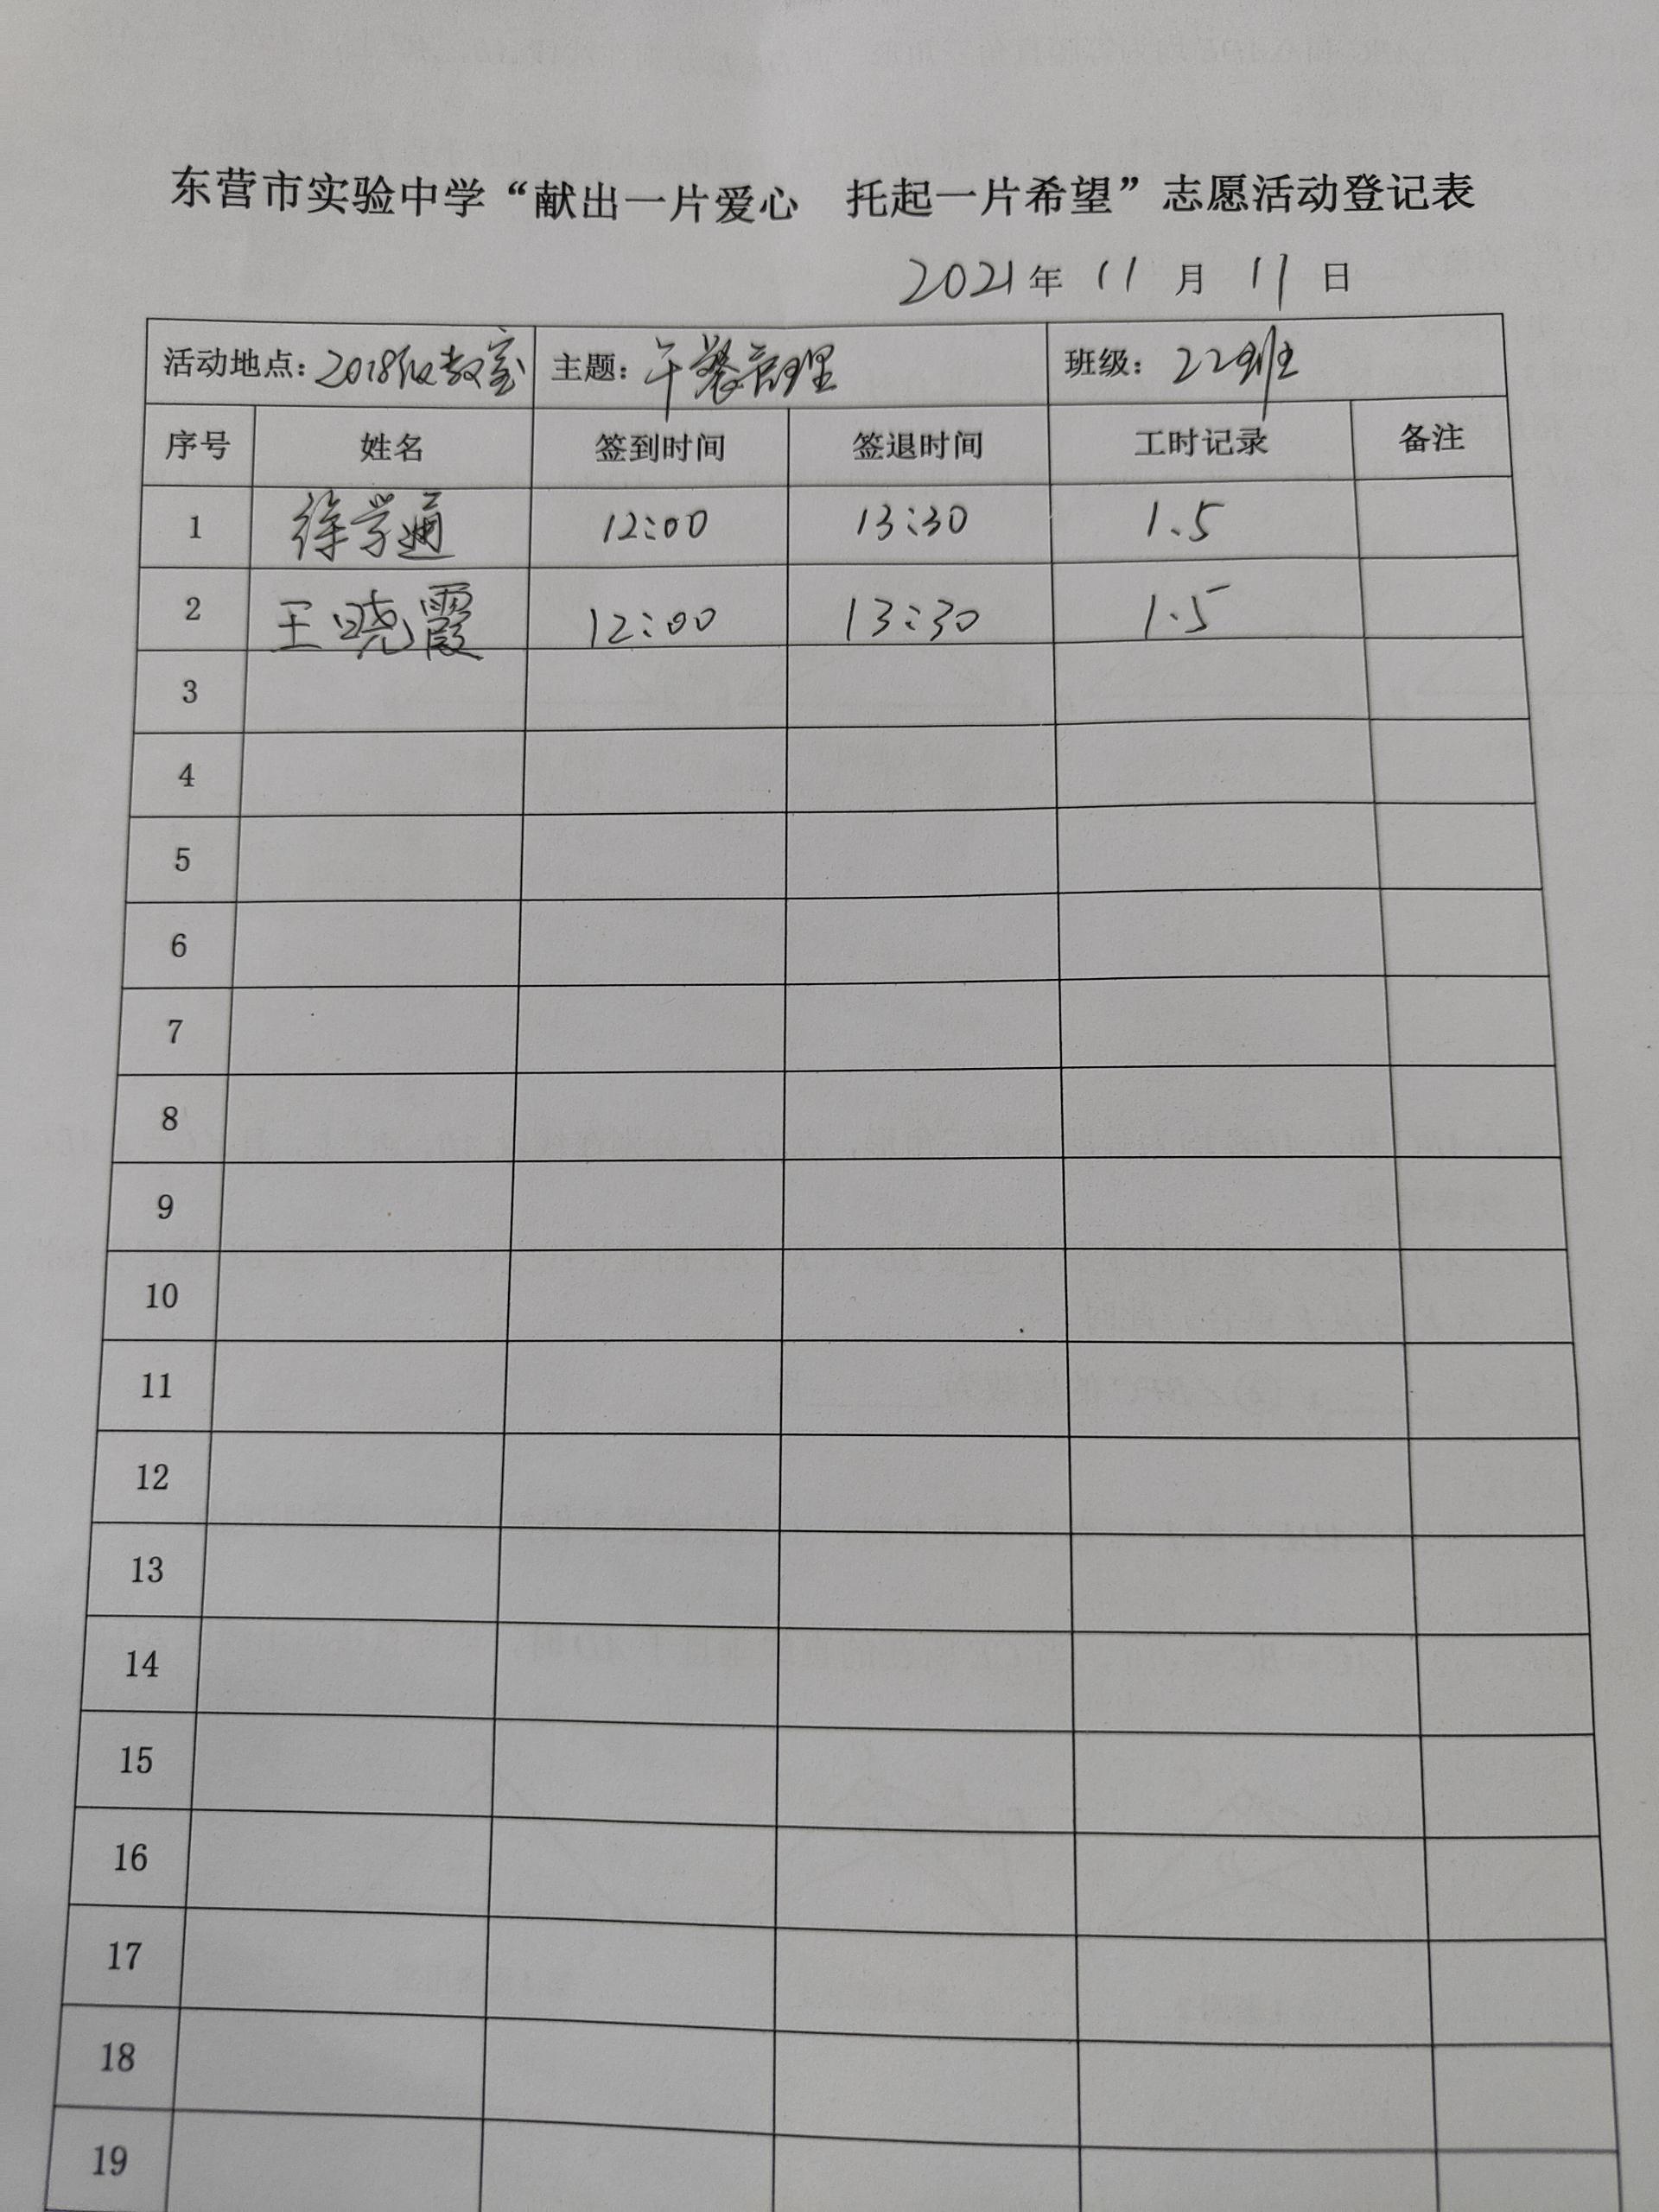 东营市实验中学“献出一片爱心　托起一片希望”志愿活动登记表
2021年 11 月 11 日
活动地点：2018级教室 主题：午餐管理 班级：22班
序号 姓名 签到时间 签退时间 工时记录 备注
1 徐学通 12:00 13:30 1.5
2 王晓霞 12:00 13:30 1.5
3
4
5
6
7
8
9
10
11
12
13
14
15
16
17
18
19